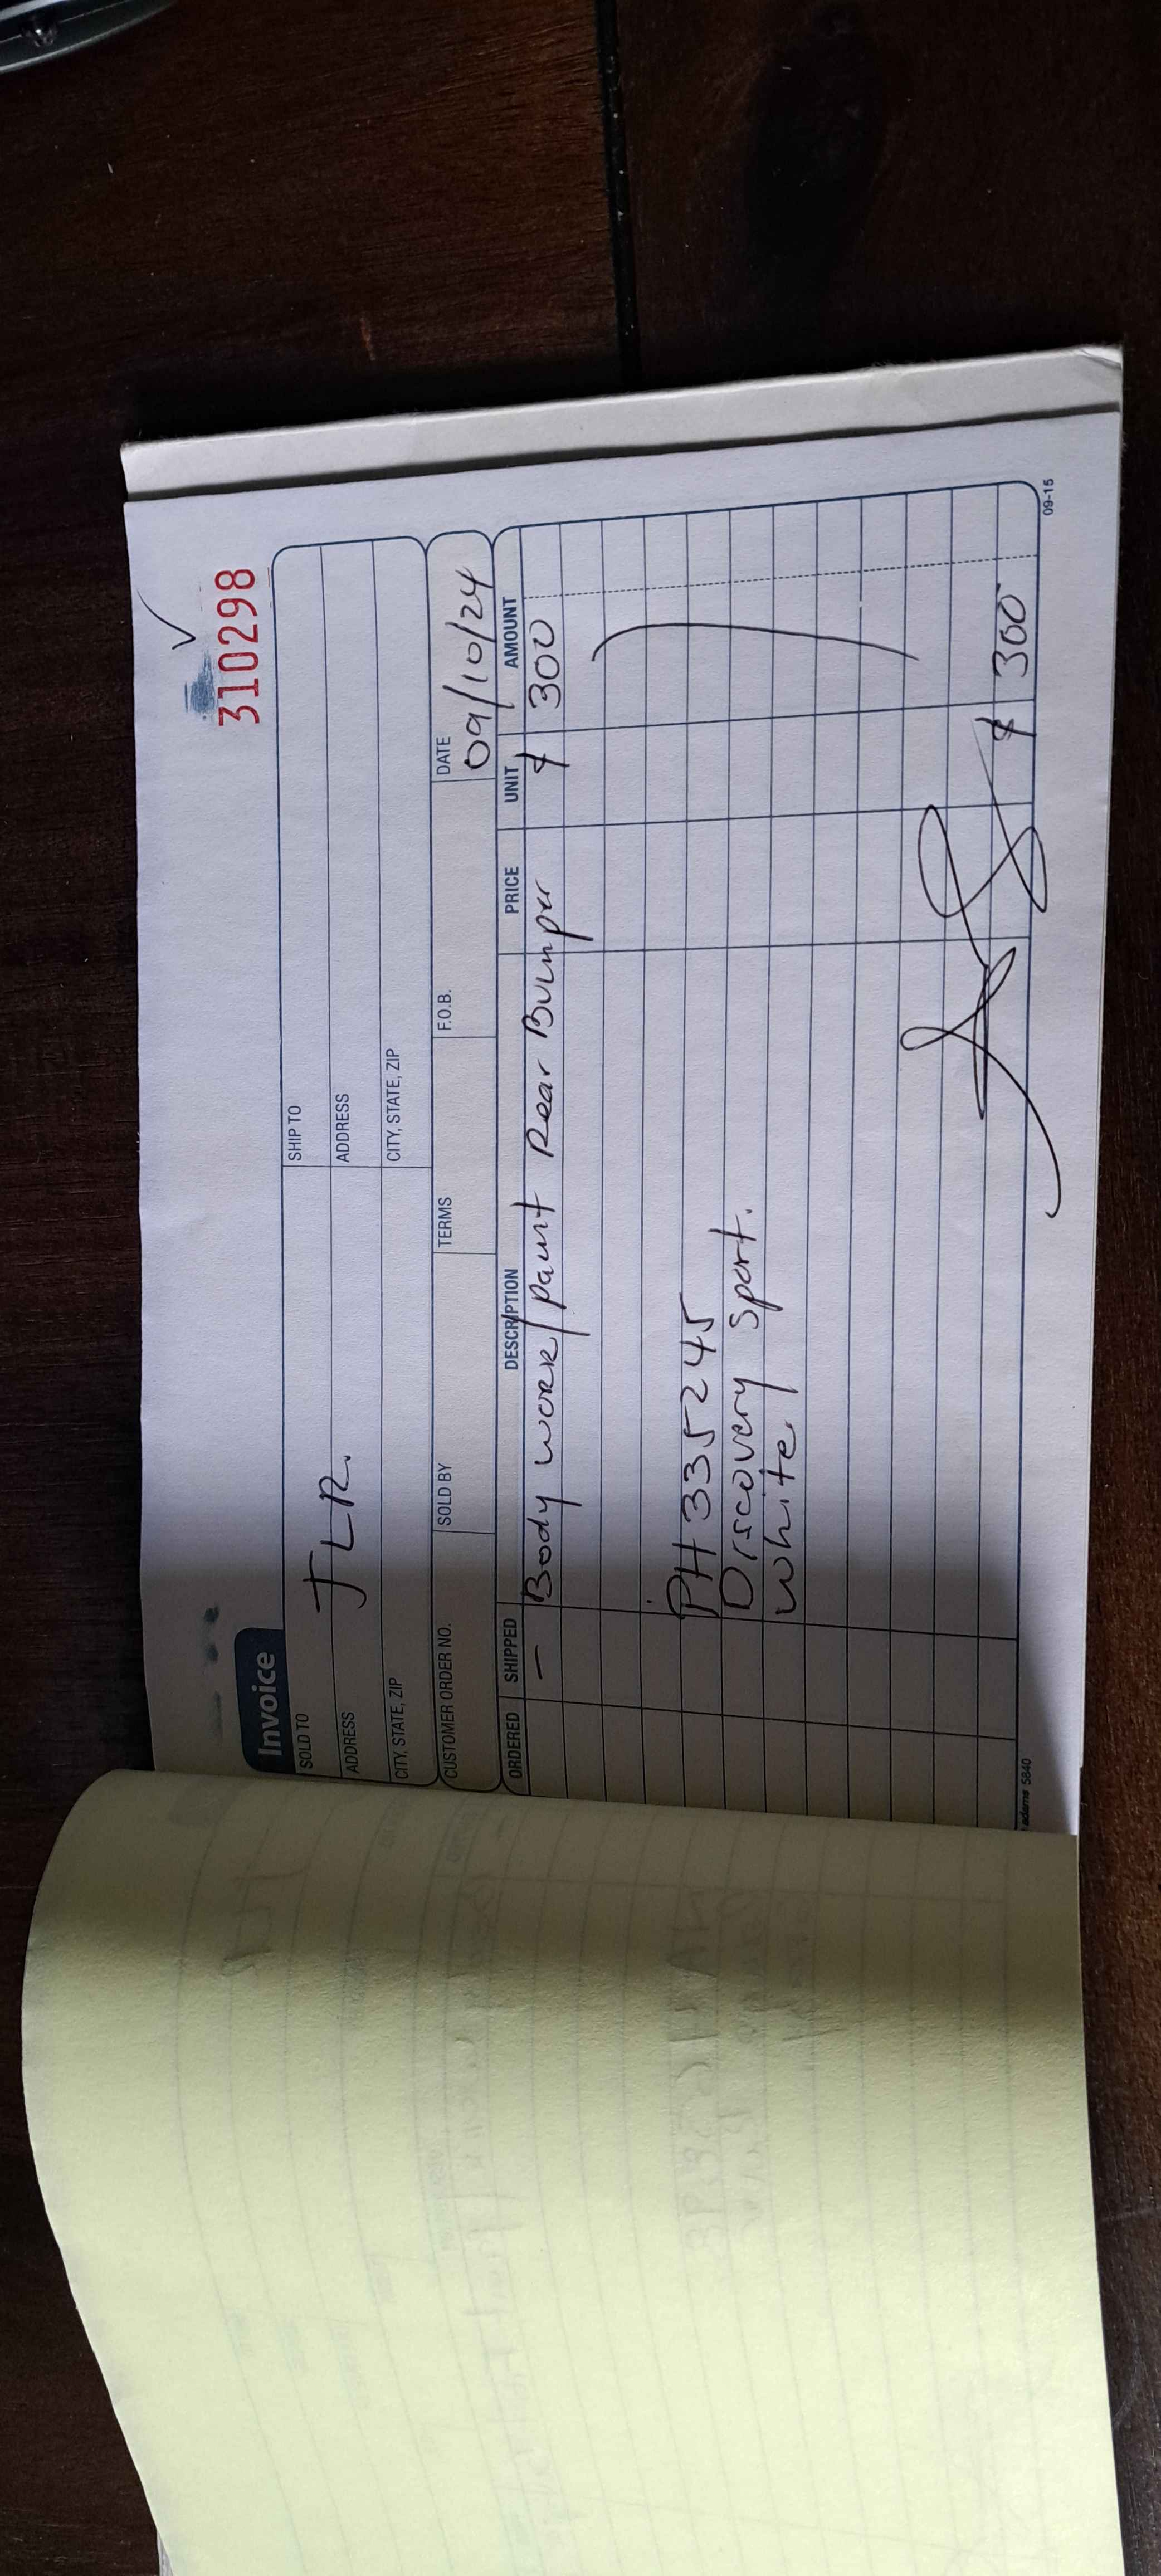 310298
Invoice
SOLD TO JLR.
SHIP TO
ADDRESS
ADDRESS
CITY, STATE, ZIP
CITY, STATE, ZIP
CUSTOMER ORDER NO. SOLD BY TERMS F.O.B. DATE 09/10/24
ORDERED SHIPPED DESCRIPTION PRICE UNIT AMOUNT
– Body work/paint Rear Bumper $ 300
PH 335245
Discovery Sport.
White.
$ 300
adams 5840
09-15